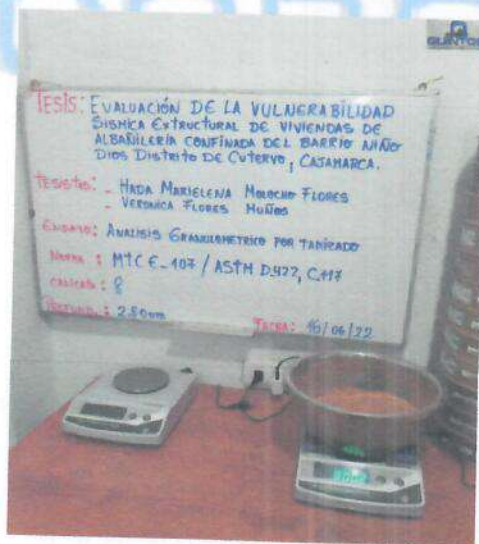 TESIS: EVALUACIÓN DE LA VULNERABILIDAD
SISMICA EXTRUCTURAL DE VIVIENDAS DE
ALBAÑILERÍA CONFINADA DEL BARRIO NIÑO
DIOS DISTRITO DE CUTERVO, CAJAMARCA.
TESISTAS: - HADA MARIELENA MOROCHO FLORES
- VERONICA FLORES MUÑOS
ENSAYO: ANALISIS GRANULOMETRICO POR TAMIZADO
NORMA : MTC E-107 / ASTM D422, C117
CALICATA : 8
: 2.80cm
FECHA: 16/06/22